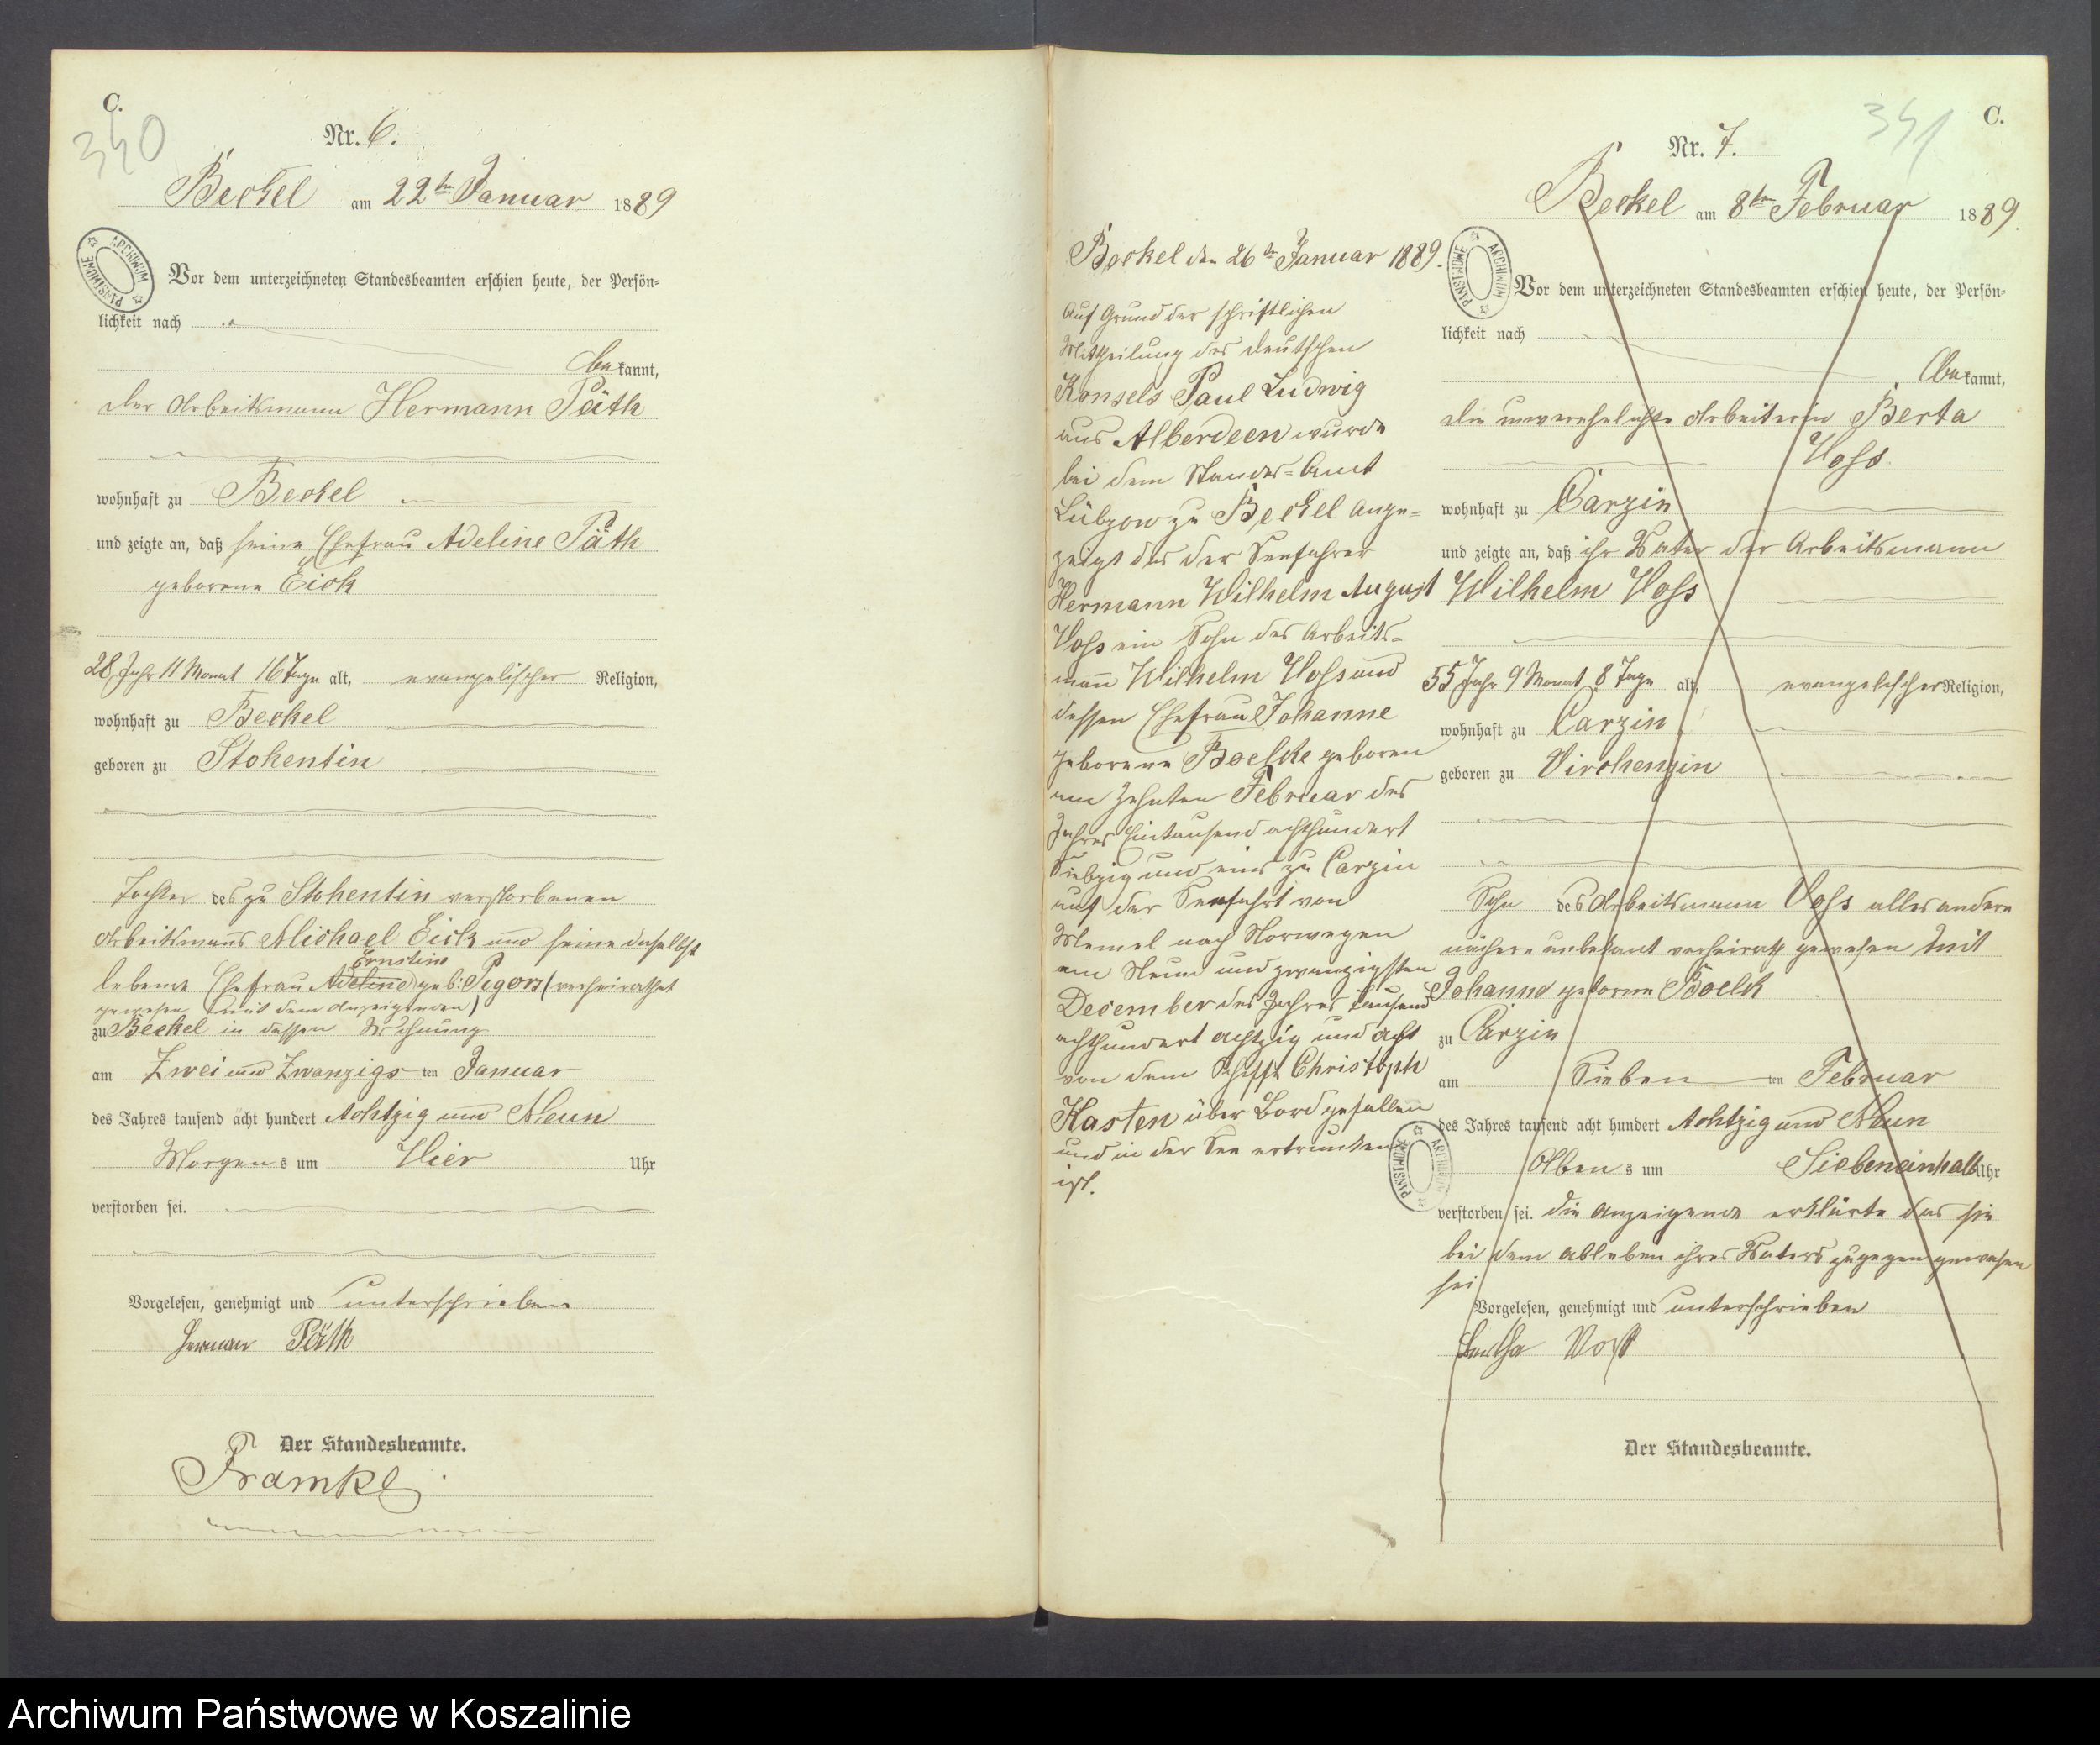 C.
340
Nr. 6.
Beckel am 22ten Januar 1889
ARCHIWUM PAŃSTWOWE
Vor dem unterzeichneten Standesbeamten erschien heute, der Persön-
lichkeit nach
bekannt,
der Arbeitsmann Hermann Päth
wohnhaft zu Beckel
und zeigte an, daß seine Ehefrau Adeline Päth
geborene Eick
28 Jahr 11 Monat 16 Tage alt, evangelischer Religion,
wohnhaft zu Beckel
geboren zu Stohentin
Tochter des zu Stohentin verstorbenen
Arbeitsmanns Michael Eick und seine daselbst
Ernstine
lebende Ehefrau Adeline geb: Pigors (verheirathet
gewesen mit dem Anzeigenden)
zu Beckel in dessen Wohnung
am Zwei und Zwanzigs ten Januar
des Jahres tausend acht hundert Achtzig und Neun
Morgens um Vier Uhr
verstorben sei.
Vorgelesen, genehmigt und unterschrieben
Herman Päth
Der Standesbeamte.
Framke
Beckel den 26ten Januar 1889.
Auf Grund der schriftlichen
Mittheilung des deutschen
Konsels Paul Ludwig
aus Alberdeen wurde
bei dem Standes-Amt
Lübzow zu Beckel ange-
zeigt das der Seefahrer
Hermann Wilhelm August
Voss ein Sohn des Arbeits-
mann Wilhelm Voss und
dessen Ehefrau Johanne
geborene Boelcke geboren
am zehnten Februar des
Jahres Eintausend achthundert
Siebzig und eins zu Carzin
auf der Seefahrt von
Memel nach Norwegen
am Neun und zwanzigsten
December des Jahres tausend
achthundert achtzig und acht
von dem Schiffe Christoph
Kasten über Bord gefallen
und in der See ertrunken
ist.
341
C.
Nr. 7.
Beckel am 8ten Februar 1889.
ARCHIWUM PAŃSTWOWE
Vor dem unterzeichneten Standesbeamten erschien heute, der Persön-
lichkeit nach
bekannt,
die unverehelichte Arbeiterin Berta
Voss
wohnhaft zu Carzin
und zeigte an, daß ihr Vater der Arbeitsmann
Wilhelm Voss
55 Jahr 9 Monat 8 Tage alt, evangelischer Religion,
wohnhaft zu Carzin
geboren zu Virchenzin
Sohn des Arbeitsmann Voss alles andere
nähere unbekant verheirath gewesen mit
Johanne geborne Böelk
zu Carzin
am Sieben ten Februar
des Jahres tausend acht hundert Achtzig und Neun
Abens um Siebeneinhalb Uhr
verstorben sei. die Anzeigende erklärte das sie
bei dem ableben ihres Vaters zugegen gewesen
sei
Vorgelesen, genehmigt und unterschrieben
Bertha Voss
ARCHIWUM PAŃSTWOWE
Der Standesbeamte.
Archiwum Państwowe w Koszalinie